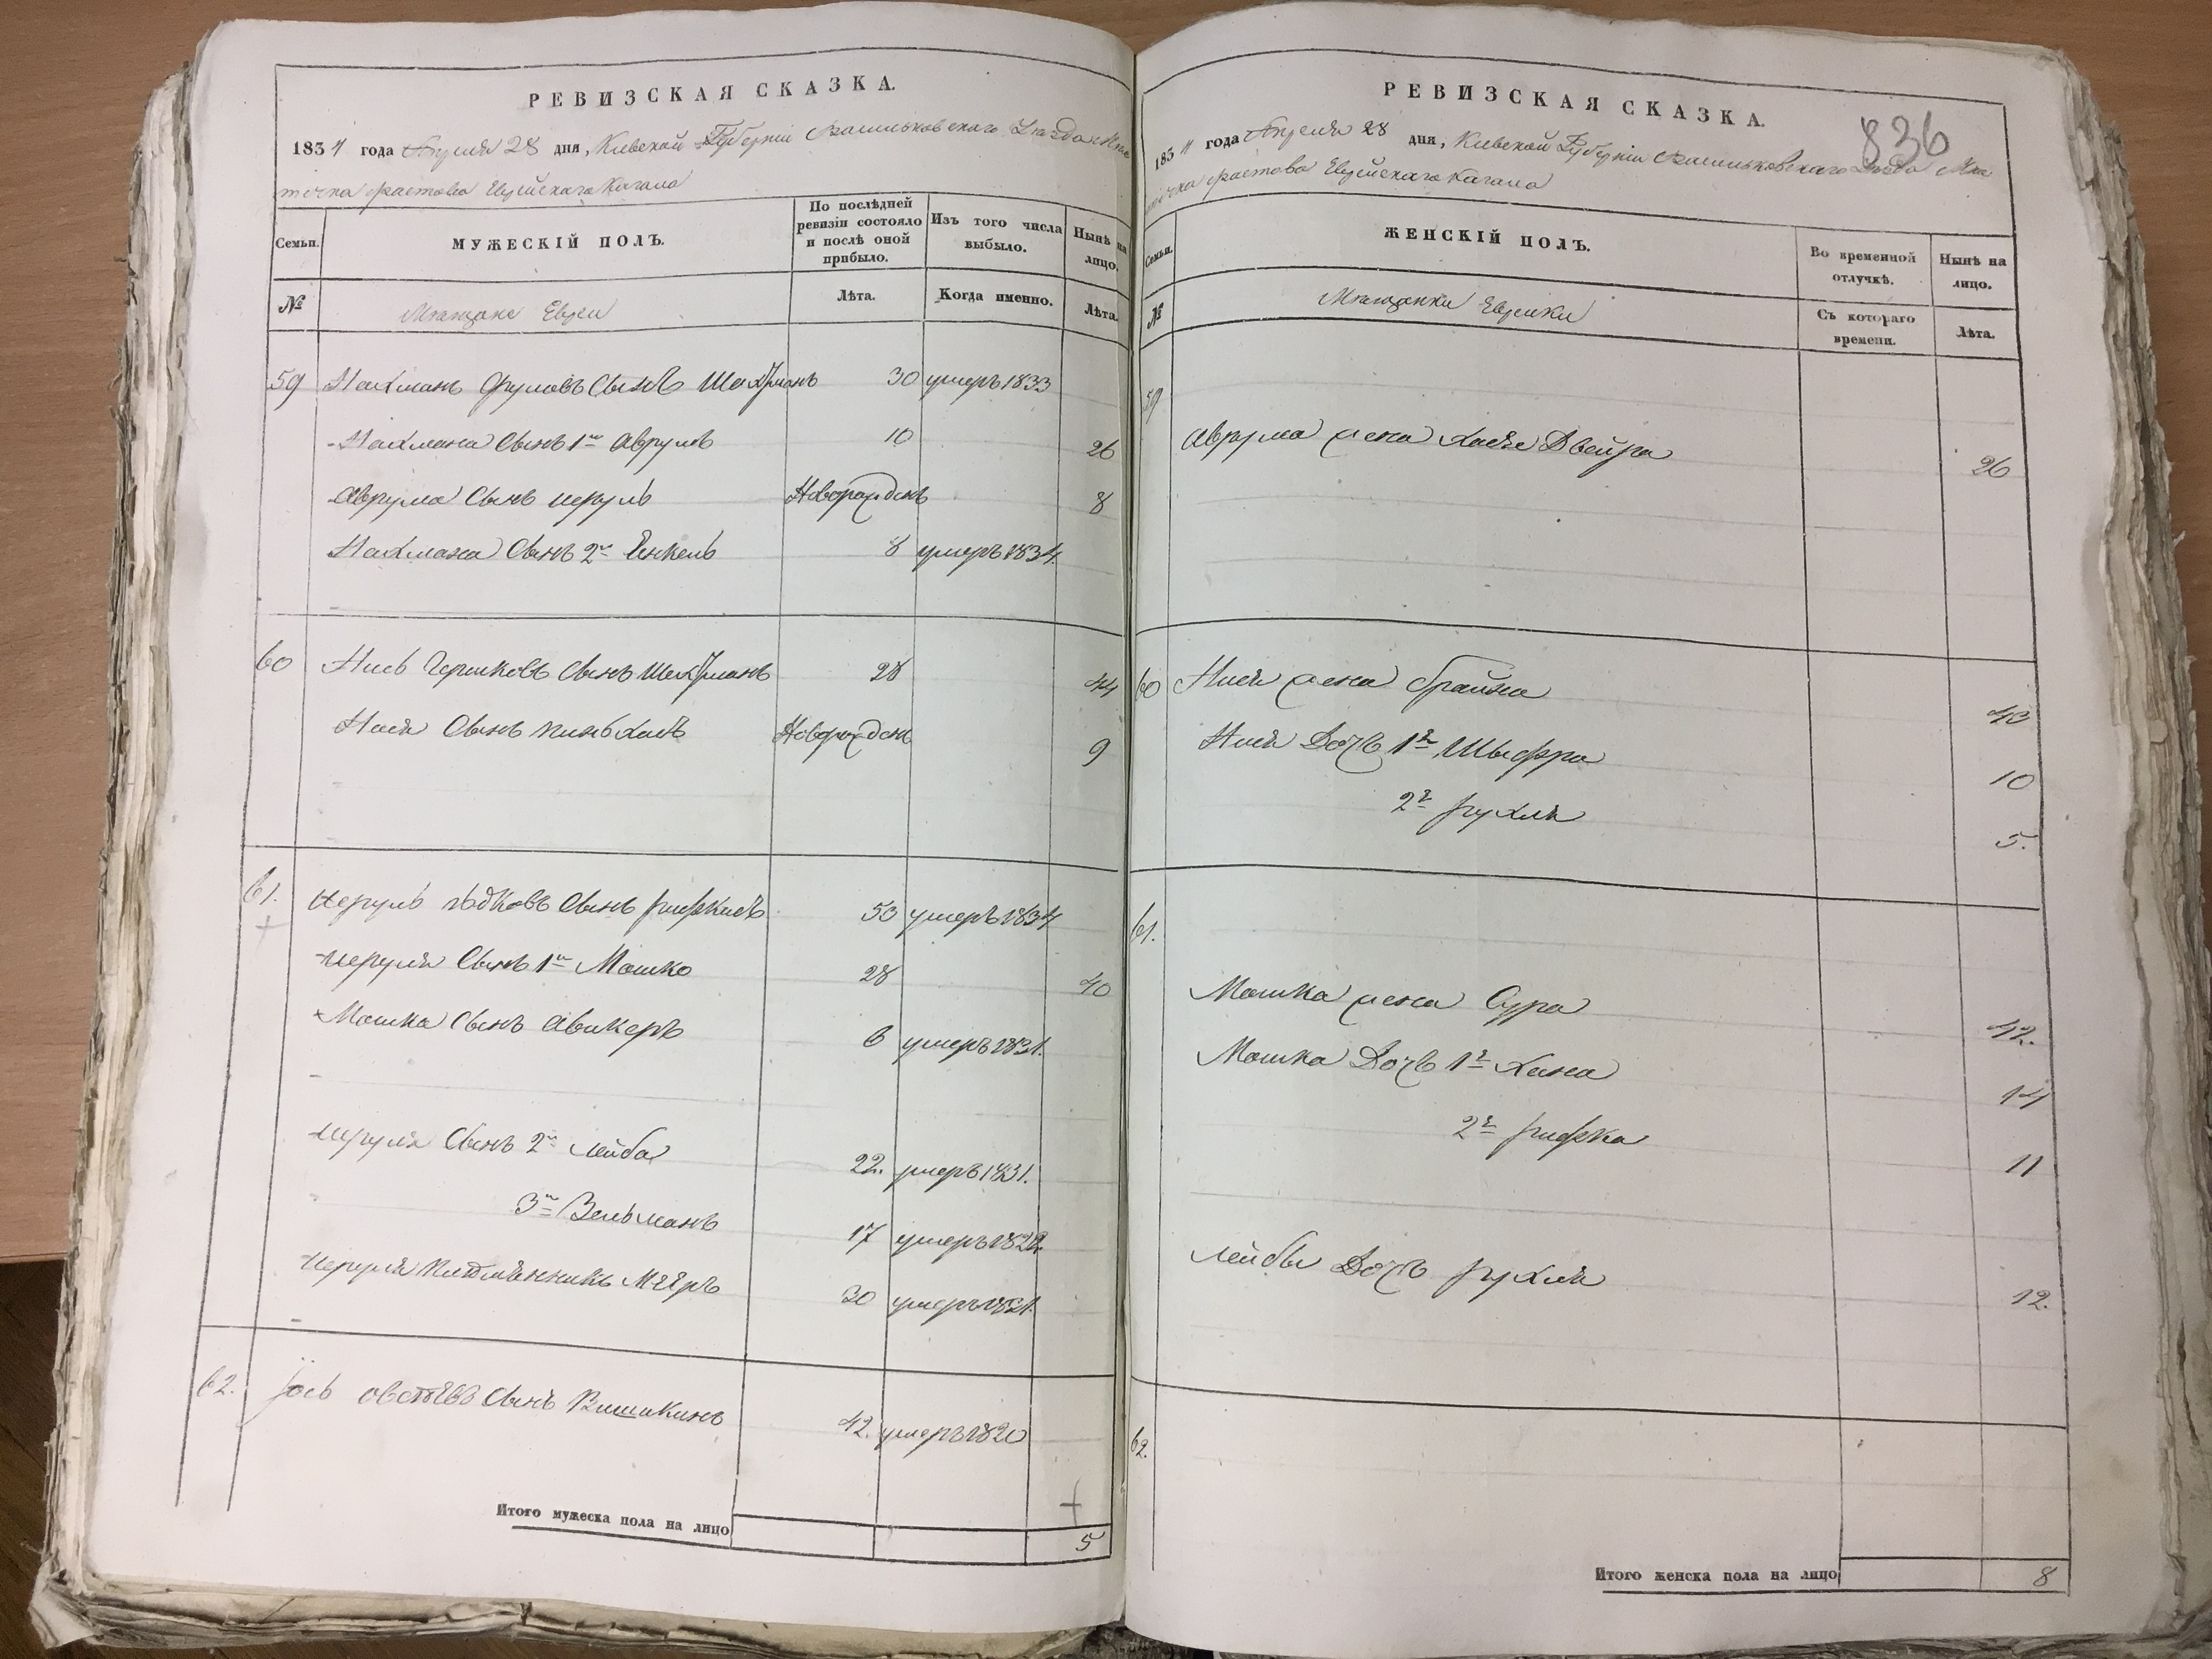 РЕВИЗСКАЯ СКАЗКА.
1834 года Апреля 28 дня, Киевской Губернiи Васильковскаго Уезда Мес
течка Фастова Еврейскаго Кагала
Семьи.
МУЖЕСКIЙ ПОЛЪ.
По послѣдней ревизiи состояло и послѣ оной прибыло.
Изъ того числа выбыло.
Нынѣ на лицо.
№
Мещане Евреи
Лѣта.
Когда именно.
Лѣта.
59 Нахманъ Сынъ 30 умеръ 1833
Нахмана Сынъ 1й Аврумъ 10 26
Аврума Сынъ Новорожденъ 8
Нахмана Сынъ 2й Енкель 8 умеръ 1834.
60 Нисъ Гершковъ Сынъ 28 44
Нися Сынъ Пиньхасъ Новорожденъ 9
61. Сынъ 50 умеръ 1834
Сынъ 1й Мошко 28 40
Мошка Сынъ 6 умеръ 1831.
Сынъ 2й Лейба 22. умеръ 1831.
3й Зельманъ 17
Племѣнникъ Мееръ 30
62. Iось Сынъ 42. умеръ 1820
Итого мужеска пола на лицо 5
РЕВИЗСКАЯ СКАЗКА.
836
1834 года Апреля 28 дня, Киевской Губернiи Васильковскаго Уезда Мес
течка Фастова Еврейскаго Кагала
Семьи.
ЖЕНСКIЙ ПОЛЪ.
Во временной отлучкѣ.
Нынѣ на лицо.
№
Мещанки Еврейки
Съ котораго времени.
Лѣта.
59
Аврума жена Хася Двейра 26
60 Нися жена Брайна 43
Нися Дочь 1я Шыфра 10
2я Рухля 5.
61.
Мошка жена Сура 42.
Мошка Дочь 1я Хана 14
2я Рифка 11
Лейбы Дочь Рухля 12.
62.
Итого женска пола на лицо 8